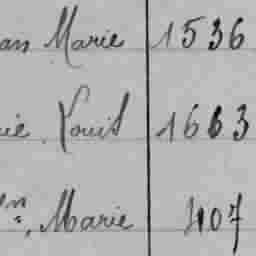 an Marie 1536
ie Louis 1663
en, Marie 407